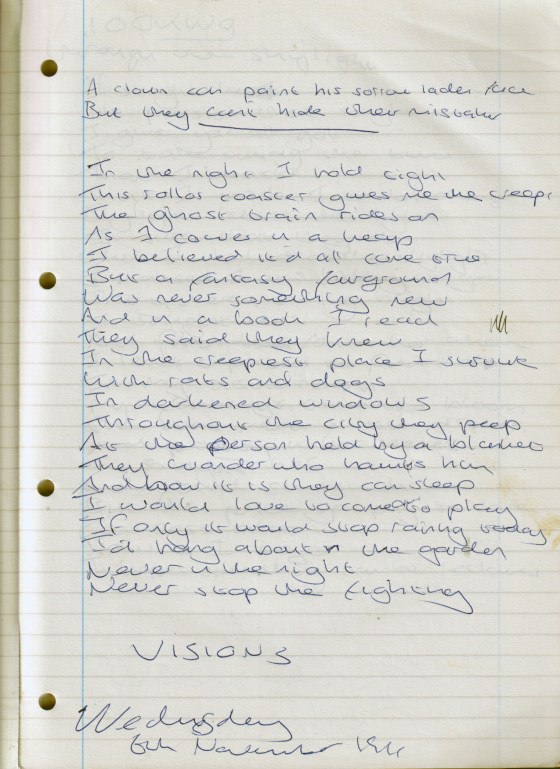 A clown can paint his sorrow laden face
But they can't hide their mistakes
In the night I hold tight
This rollor coaster gives me the creeps
The ghost train rides on
As I cower in a heap
I believed it'd all come true
But a fantasy fairground
Was never something new
And in a book I read
They said they knew
In the creepiest place I
With rats and dogs
In darkened windows
Throughout the city they peep
At the person held by a blanket
They wonder who haunts him
And how it is they can sleep
I would love to come to play
If only it would stop raining today
I'd hang about in the garden
Never in the night
Never stop the fighting
VISIONS
Wednesday
6th November